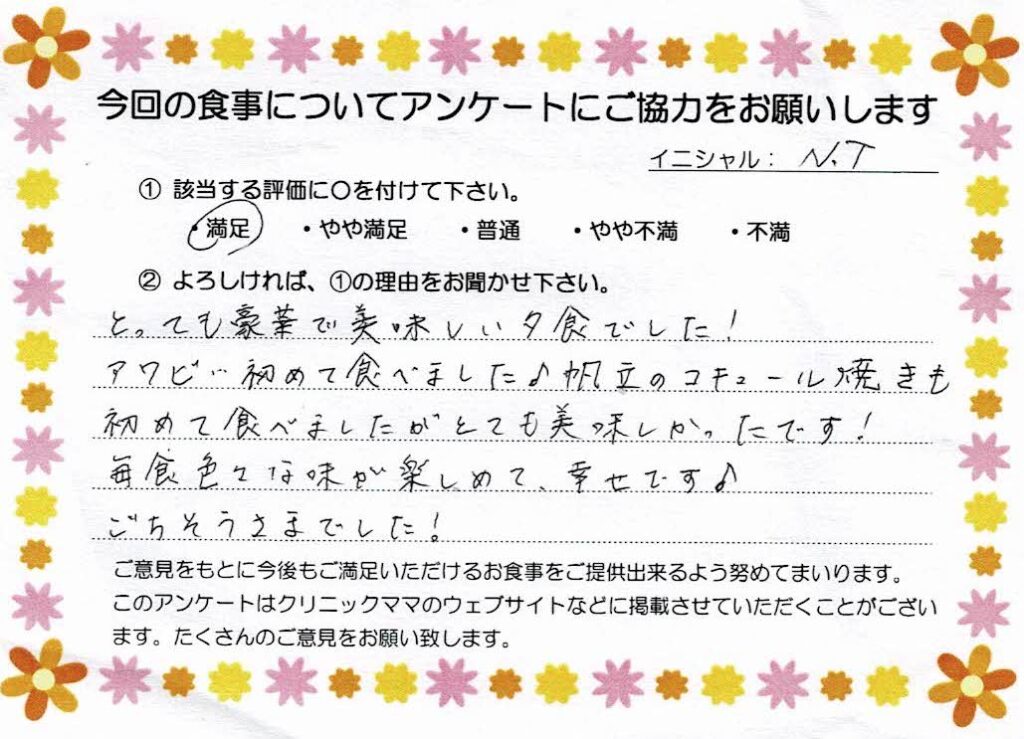 今回の食事についてアンケートにご協力をお願いします
イニシャル： N.T
① 該当する評価に〇を付けて下さい。
・満足 ・やや満足 ・普通 ・やや不満 ・不満
② よろしければ、①の理由をお聞かせ下さい。
とっても豪華で美味しい夕食でした！
アワビ… 初めて食べました♪帆立のコキュール焼きも
初めて食べましたがとても美味しかったです！
毎食色々な味が楽しめて、幸せです♪
ごちそうさまでした！
ご意見をもとに今後もご満足いただけるお食事をご提供出来るよう努めてまいります。
このアンケートはクリニックママのウェブサイトなどに掲載させていただくことがござい
ます。たくさんのご意見をお願い致します。